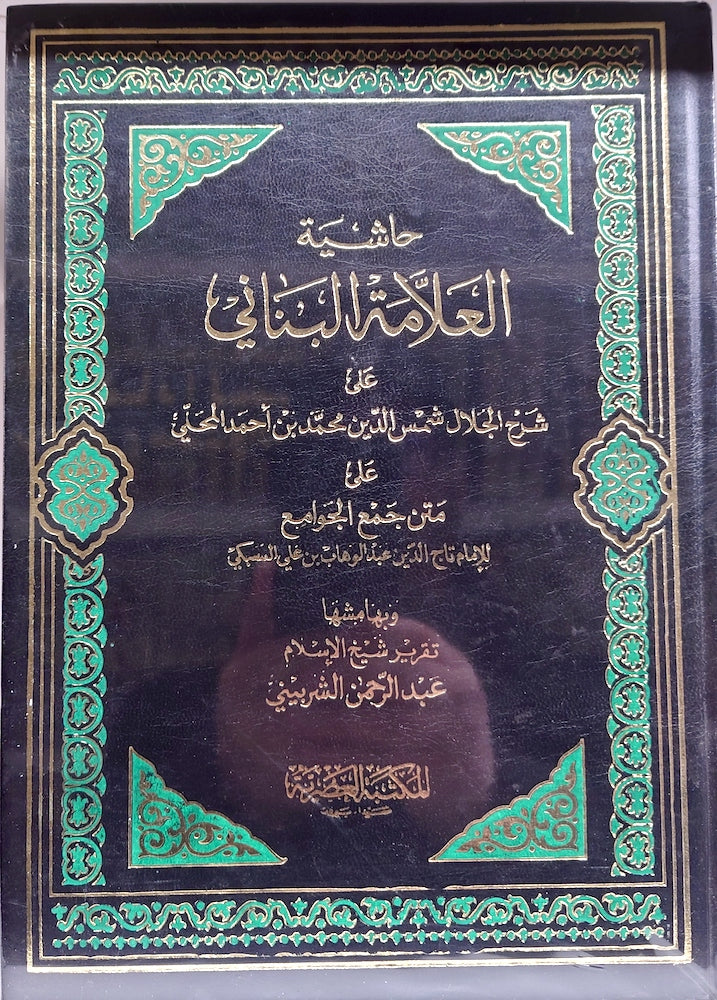 حاشية
العلامة البناني
على
شرح الجلال شمس الدين محمد بن أحمد المحلي
على
متن جمع الجوامع
للإمام تاج الدين عبد الوهاب بن علي السبكي
وبهامشها
تقرير شيخ الإسلام
عبد الرحمن الشربيني
المكتبة العصرية